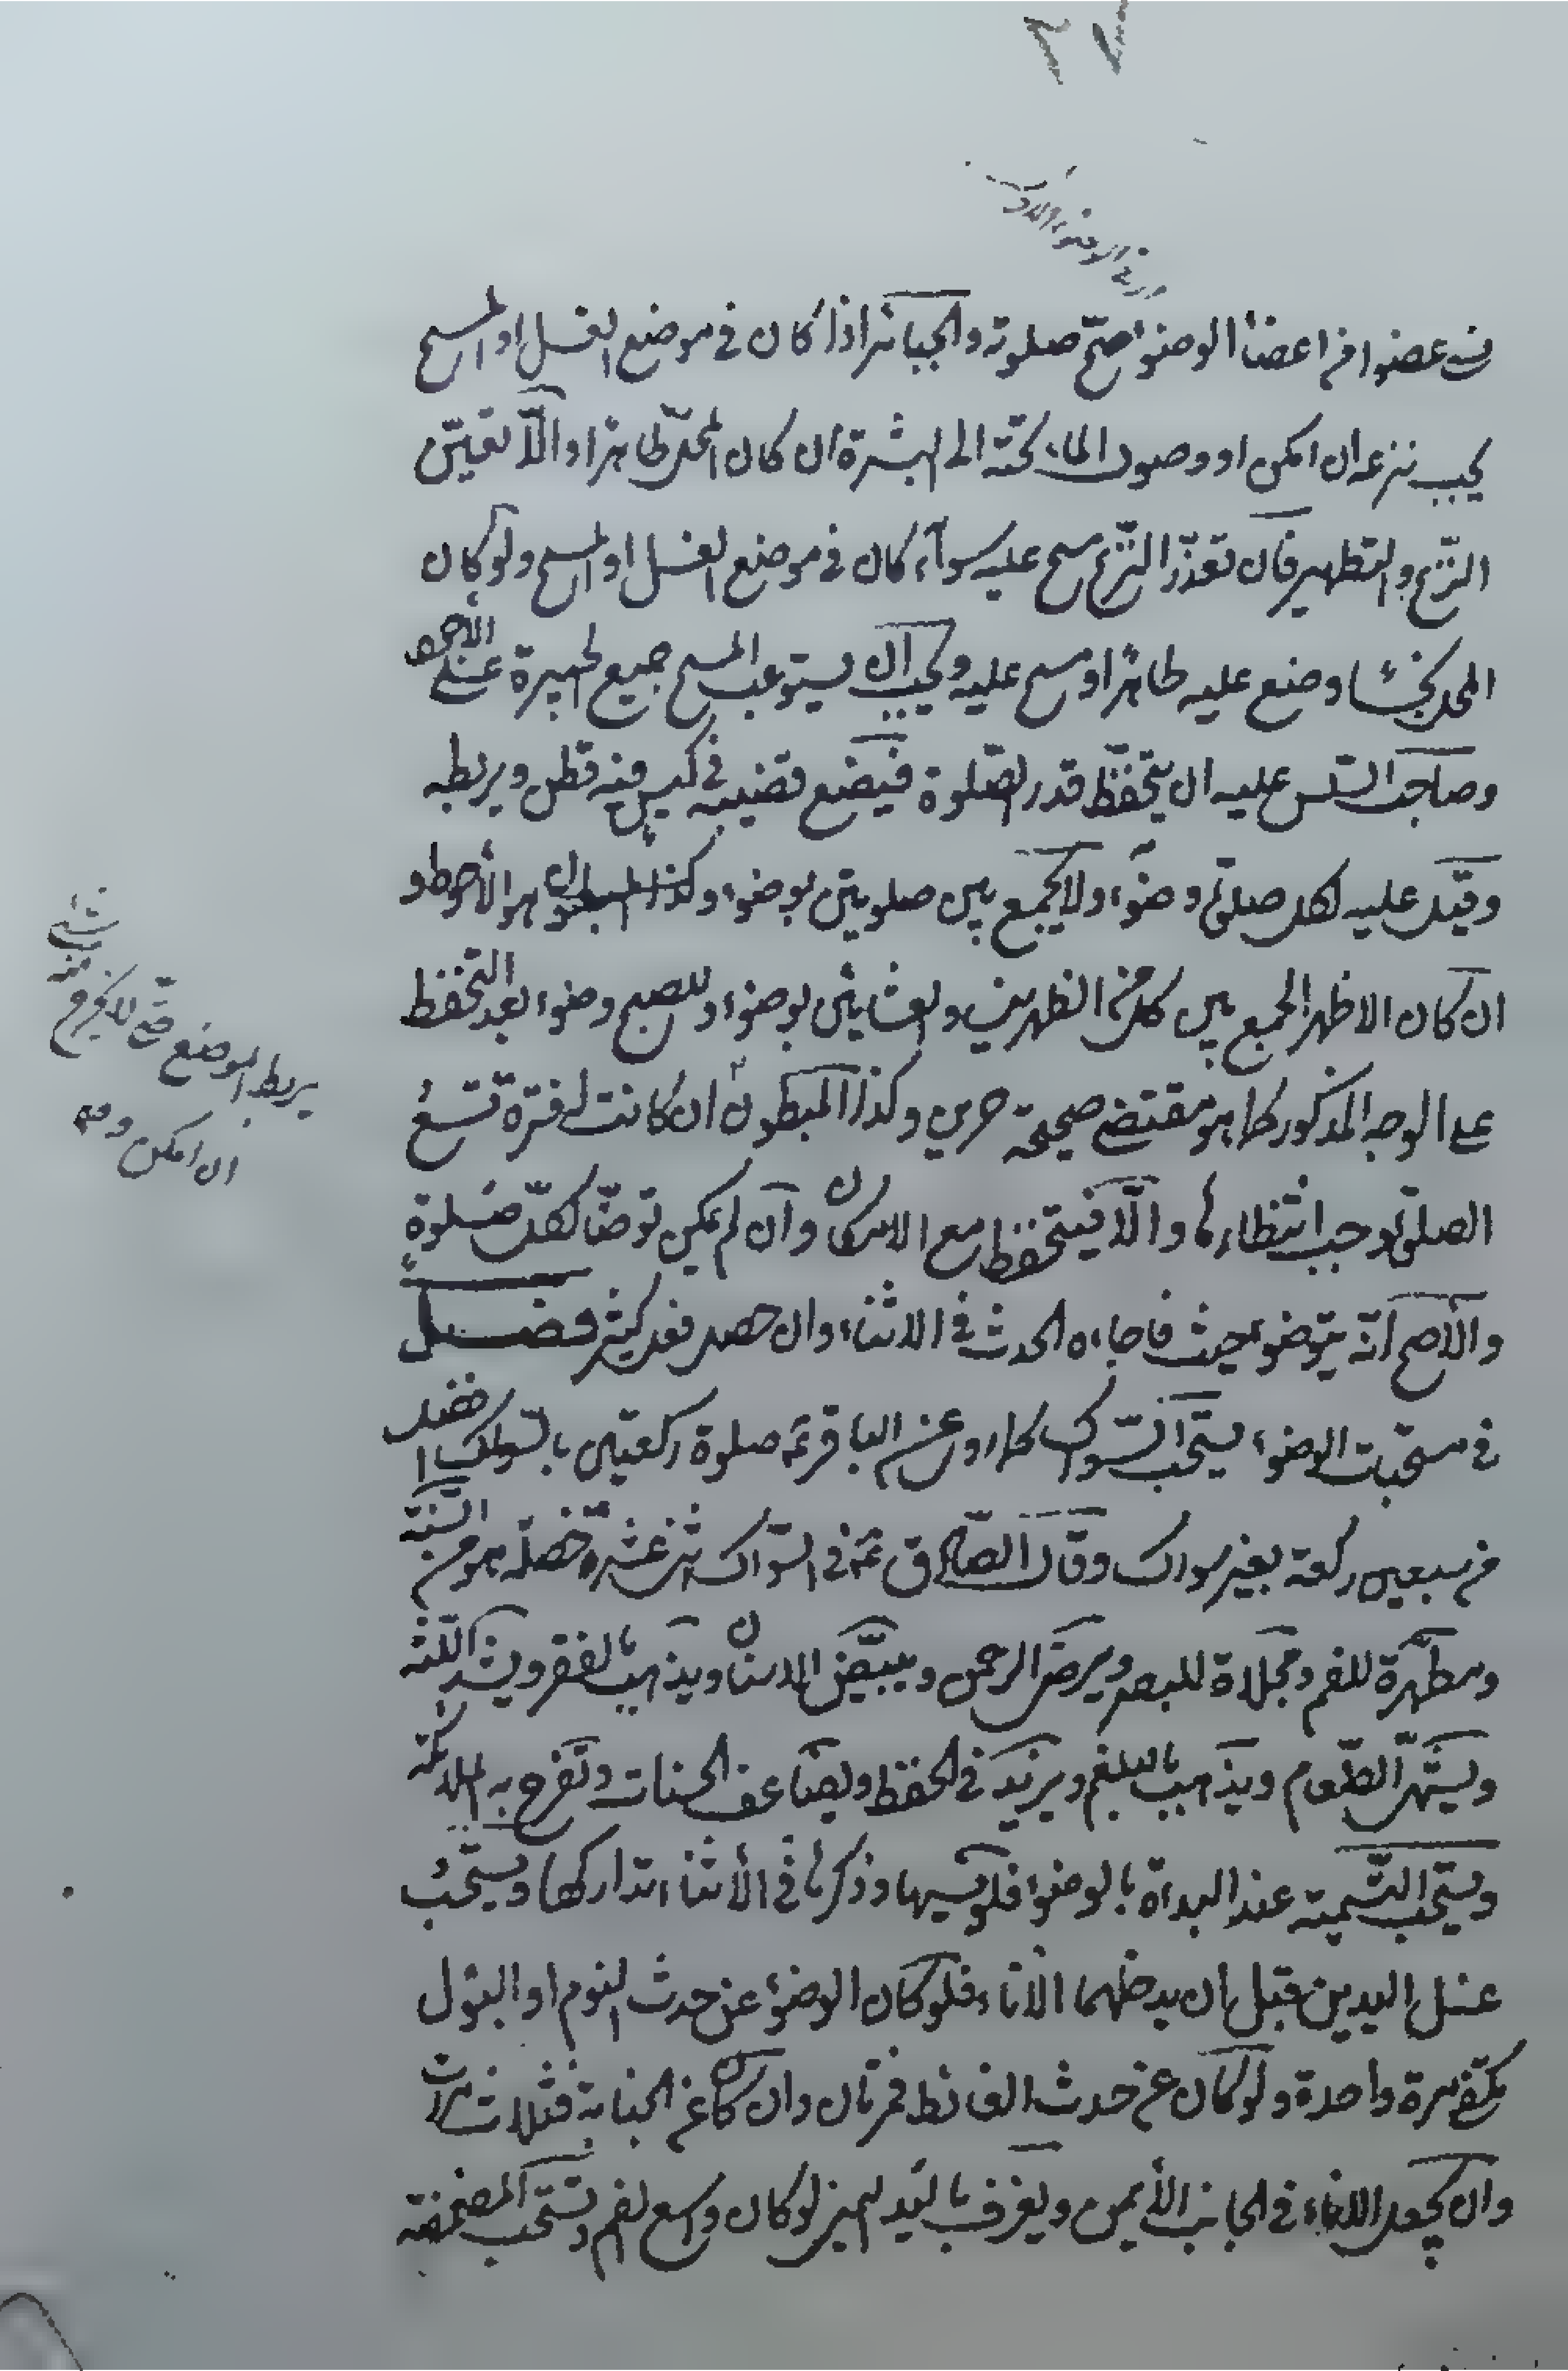 في عضو من اعضاء الوضوء صح صلوته والجبائر اذا كان في موضع الغسل او المسح
يجب نزعه ان امكن او وصول الماء تحته الى البشرة ان كان المحل طاهرا والّا تعيّن
النزع والتطهير فان تعذّر النزع مسح عليه سواء كان في موضع الغسل او المسح ولو كان
المحل نجسا وضع عليه طاهرا ومسح عليه ويجب ان يستوعب المسح جميع الجبيرة على الأحوط
وصاحب السلس عليه ان يتحفّظ قدر الصّلوة فيضع قضيبه في كيس فيه قطن ويربطه
وقيل عليه لكل صلوة وضوء ولا يجمع بين صلوتين بوضوء وكذا المبطون هو الأحوط و
ان كان الاظهر الجمع بين كل من الظهرين والعشائين بوضوء وللصبح وضوء بعد التحفظ
على الوجه المذكور كما هو مقتضى صحيحة حريز وكذا المبطون ان كانت له فترة تسعُ
الصلوة وجب انتظارها والّا فيتحفظ مع الامكان وان لم يمكن توضّأ لكلّ صلوة
والأصح انّه يتوضو حيث فاجاءه الحدث في الاثناء وان حصل فعل كثير فصل
في مستحبات الوضوء يستحب السّواك كما روي عن الباقر عم صلوة ركعتين بالسواك افضل
من سبعين ركعة بغير سواك وقال الصّادق عم في السّواك اثنى عشرة خصلة هو من السنّة
ومطهّرة للفم ومجلاة للبصر ويرضى الرحمن ويبيّض الاسنان ويذهب بالحفر ويشد اللّثة
ويشهّى الطّعام ويذهب بالبلغم ويزيد في الحفظ ويضاعف الحسنات وتفرح به الملائكة
ويستحب التّسمية عند البداة بالوضوء فلو نسيها وذكرها في الأثناء تداركها ويستحب
غسل اليدين قبل ان يدخلهما الأناء فلو كان الوضوء عن حدث النوم او البول
يكفي مرة واحدة ولو كان عن حدث الغائط فمرتان وان كان عن الجنابة فثلاث مرات
وان يجعل الاناء في الجانب الأيمن ويغرف باليد اليمنى لو كان واسع الفم ويستحب المضمضة
يربط الموضع حتى لا يخرج منه شئ
ان امكن